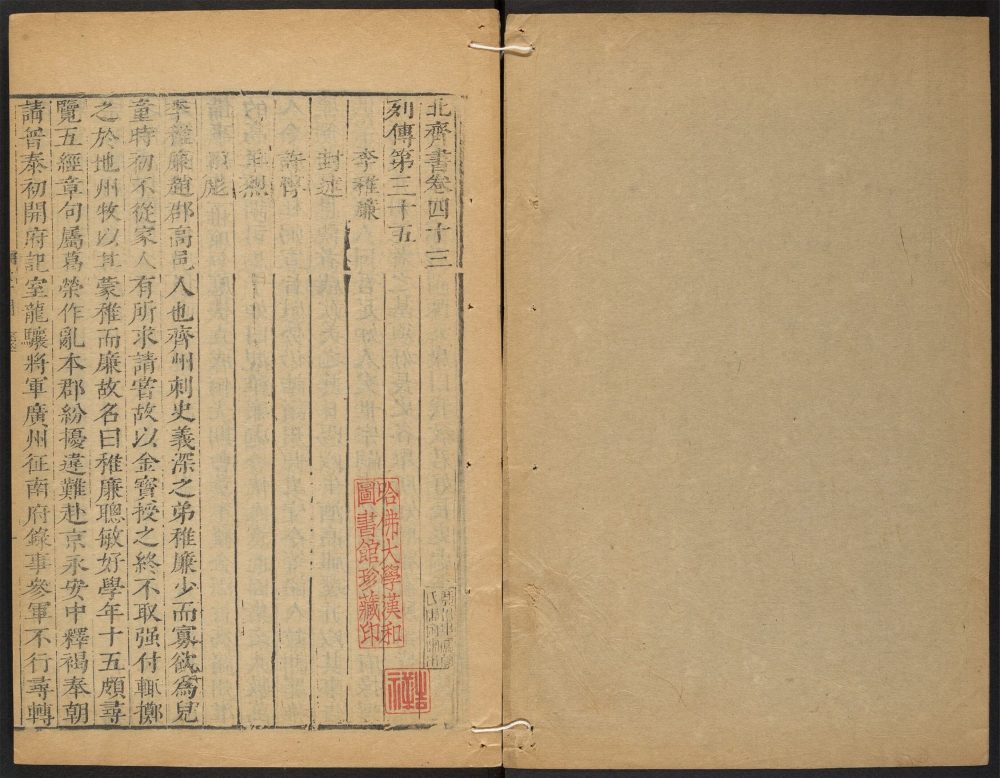 北齊書卷四十三
列傳第三十五
李稚廉
封述
許惇
羊烈
源彪
李稚廉趙郡高邑人也齊州刺史義深之弟稚廉少而寡欲為兒
童時初不從家人有所求請嘗故以金寶授之終不取强付輒擲
之於地州牧以其蒙稚而廉故名曰稚廉聰敏好學年十五頗尋
覽五經章句屬葛榮作亂本郡紛擾違難赴京永安中釋褐奉朝
請普泰初開府記室龍驤將軍廣州征南府錄事參軍不行尋轉
哈佛大學漢和
圖書館珍藏印